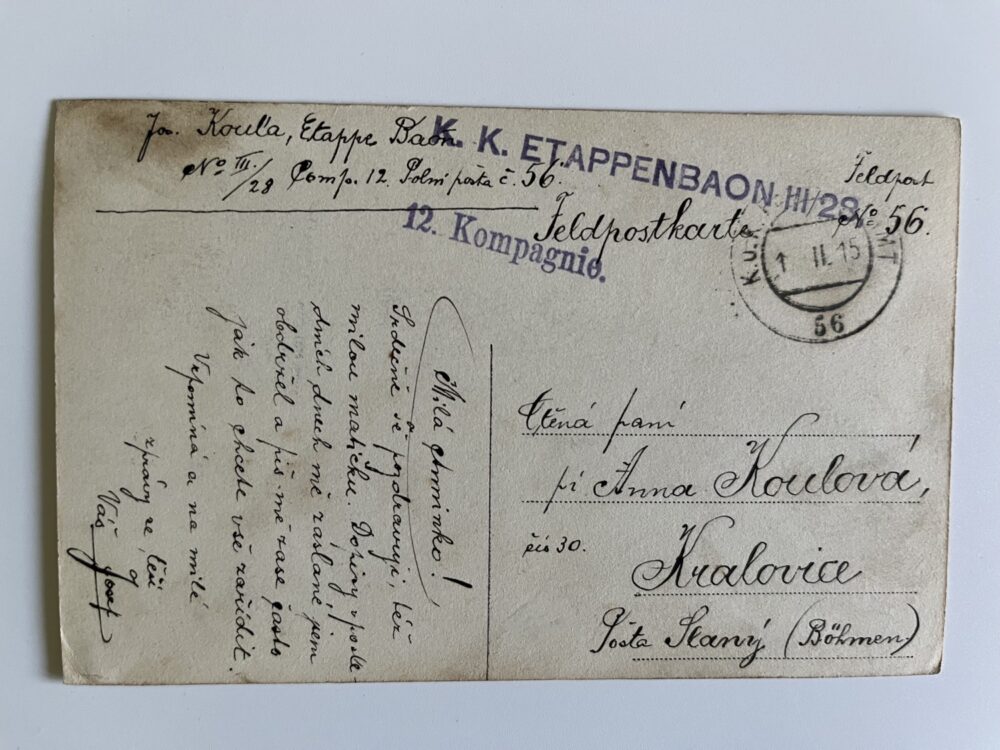 Jos. Kouľa, Etappe Baon
No III./28 Comp. 12. Polní pošta č. 56.
K. K. ETAPPENBAON III/28
12. Kompagnie.
Feldpost
Feldpostkarte No 56.
K. u. K.
MT
1 II. 15
56
Milá Anninko!
Srdečně se pozdravuji, též
a
milou matičku. Dopisy v posle-
dních dnech mě zaslané jsem
obdržel a piš mě zase často
jak to chcete vše zařídit.
Vzpomíná a na milé
zprávy se těší
Váš Josef
Ctěná paní
pí Anna Koulová,
čís 30.
Kralovice
Pošta Slaný (Böhmen)